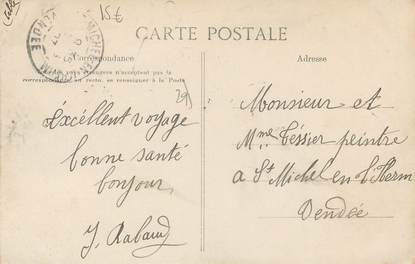 15€
CARTE POSTALE
Correspondance
Adresse
pays étrangers n'acceptent pas la
correspondance au recto, se renseigner à la Poste
29
Excellent voyage
bonne santé
bonjour
J. Rabaud
Monsieur et
Mme Tessier peintre
a St Michel en l'Herm
Vendée